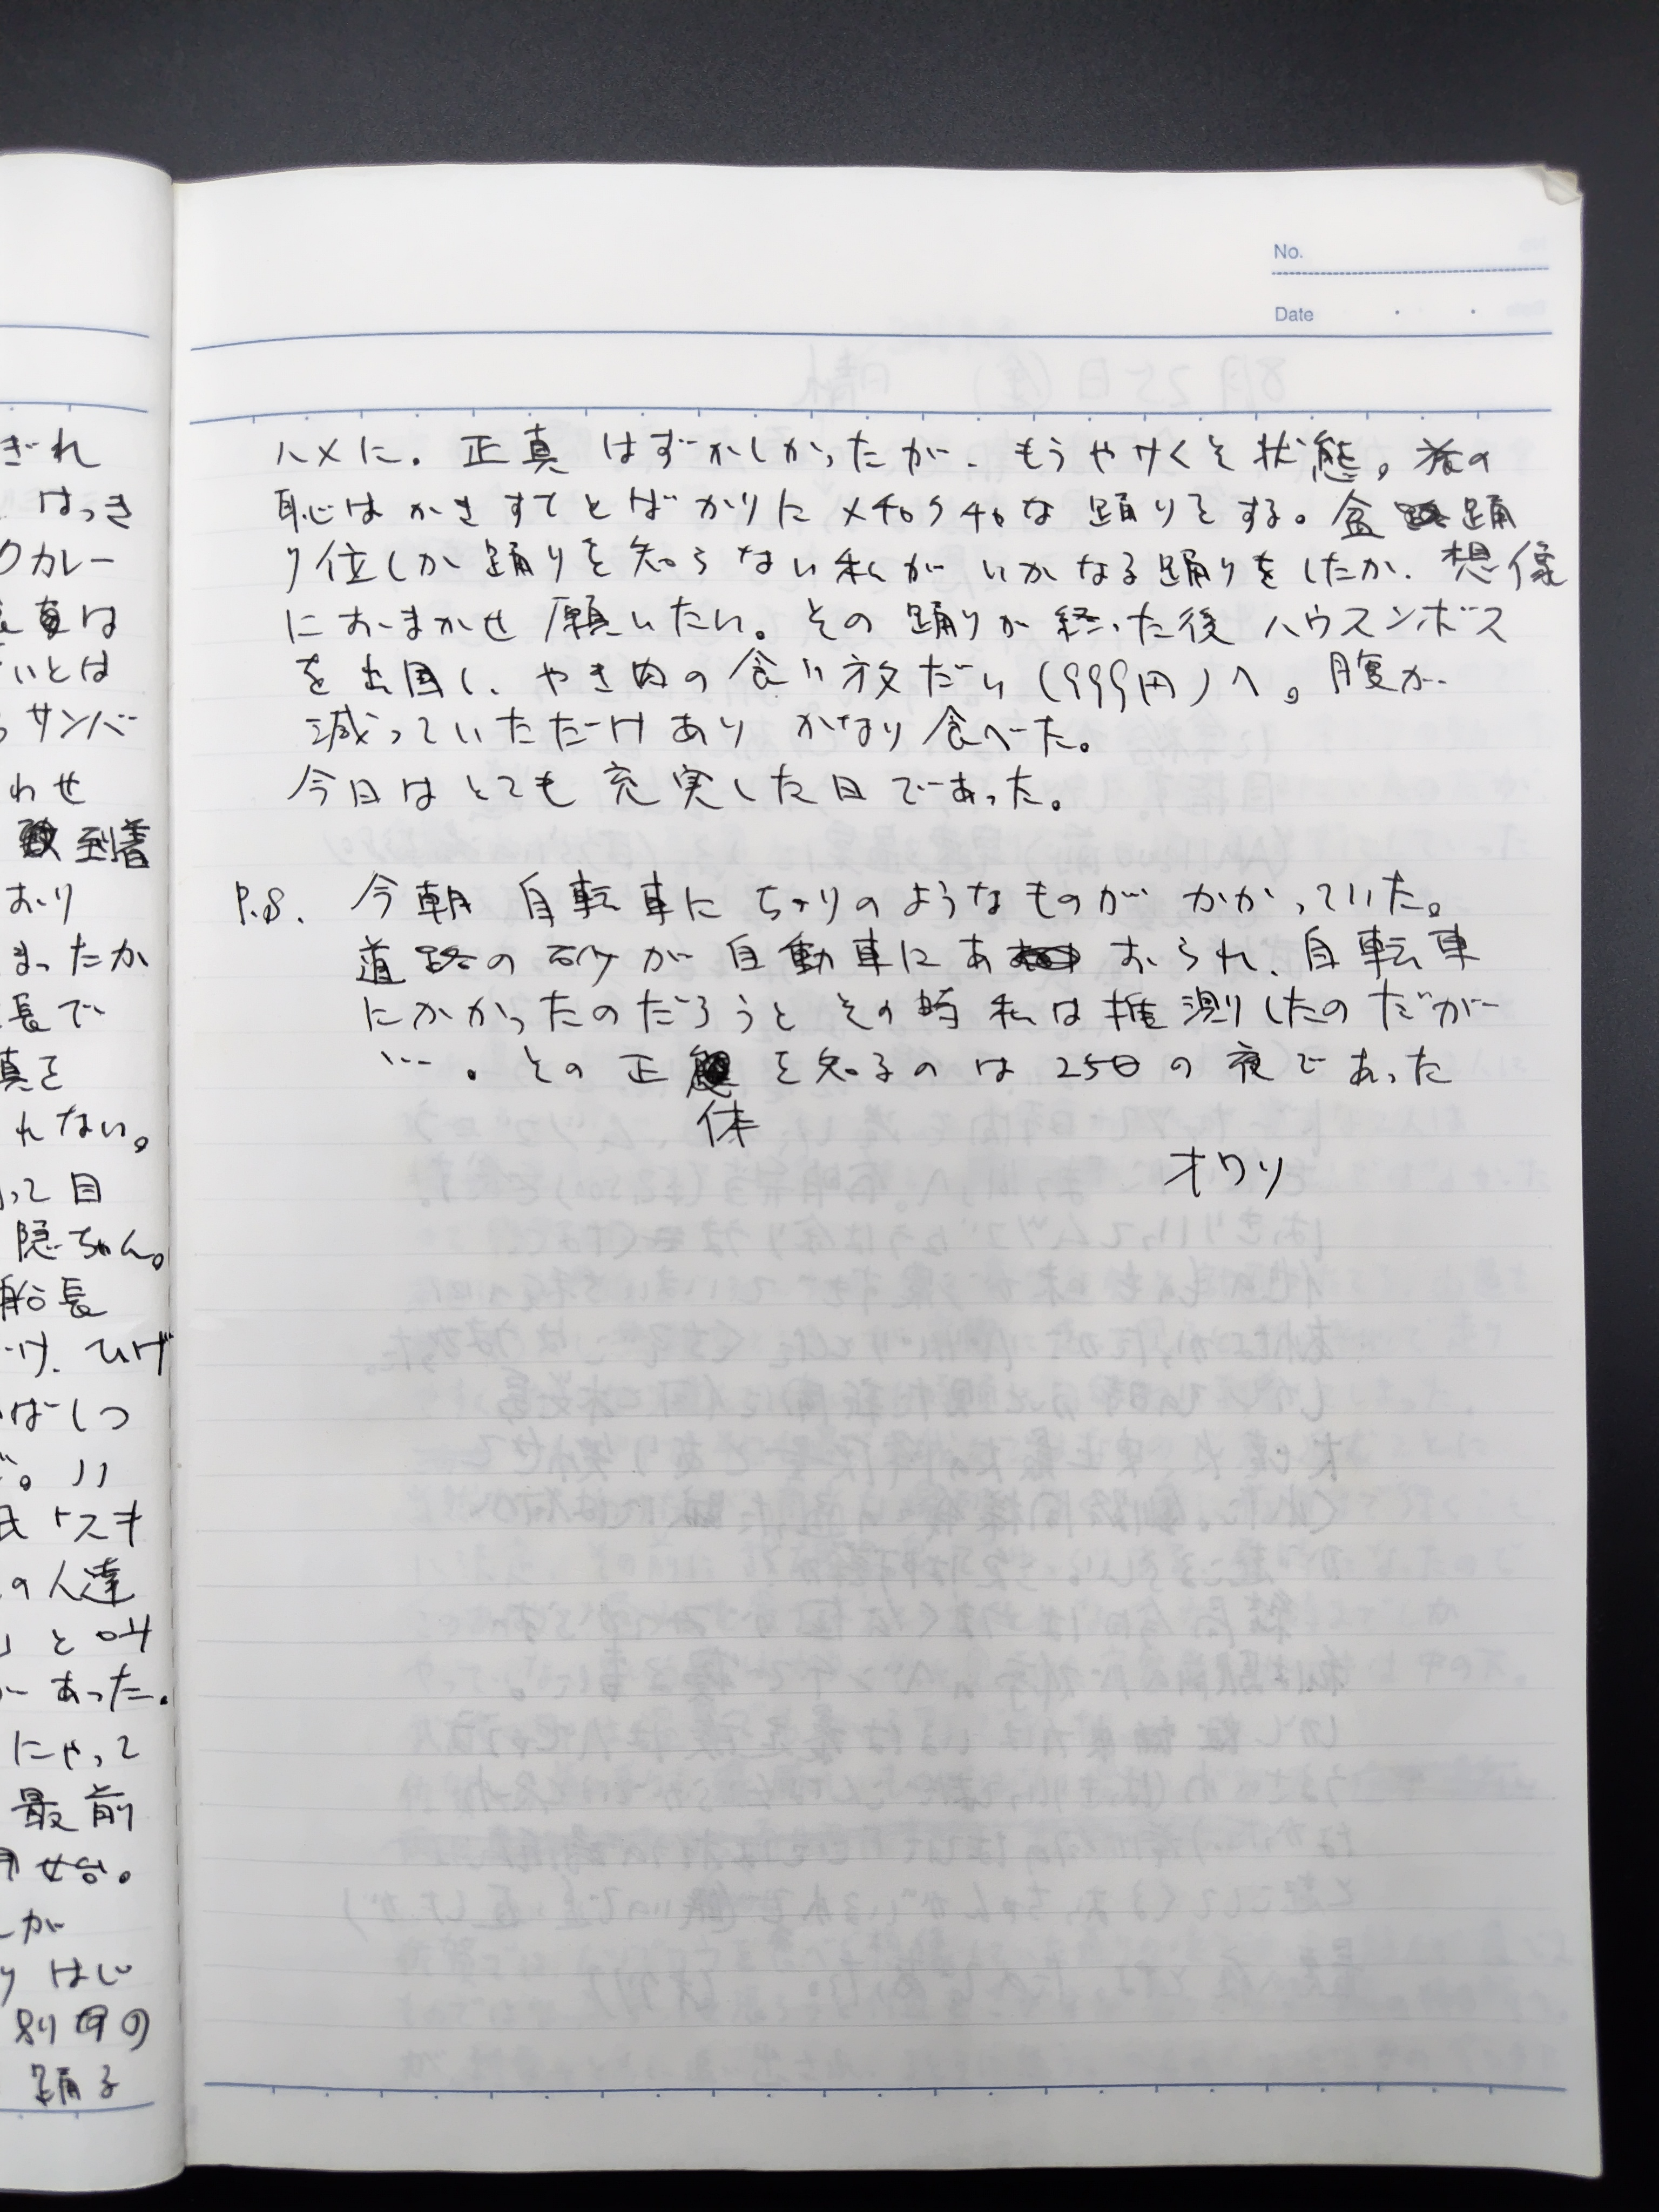 No.
Date
ハメに。正真 はずかしかったが、もうやけくそ状態。旅の
恥はかきすてとばかりにメチャクチャな踊りをする。盆踊
り位しか踊りを知らない私がいかなる踊りをしたか、想像
におまかせ願いたい。その踊りが終った後 ハウステンボス
を出国し、やき肉の食い放だい(999円)へ。腹が
減っていただけあり かなり食べた。
今日はとても充実した日であった。
P.S. 今朝 自転車にちりのようなものが かかっていた。
道路の砂が自動車にあおられ、自転車
にかかったのだろうとその時私は推測したのだが
…。その正体を知るのは25日の夜であった
オワリ
ぎれ
はっき
クカレー
真は
いとは
サンバ
わせ
到着
おり
まったか
長で
真を
れない。
って目
隠ちゃん。
船長
け、ひげ
ばしつ
スキ
の人達
と叫
あった。
にやって
最前
が
はじ
別日の
踊る